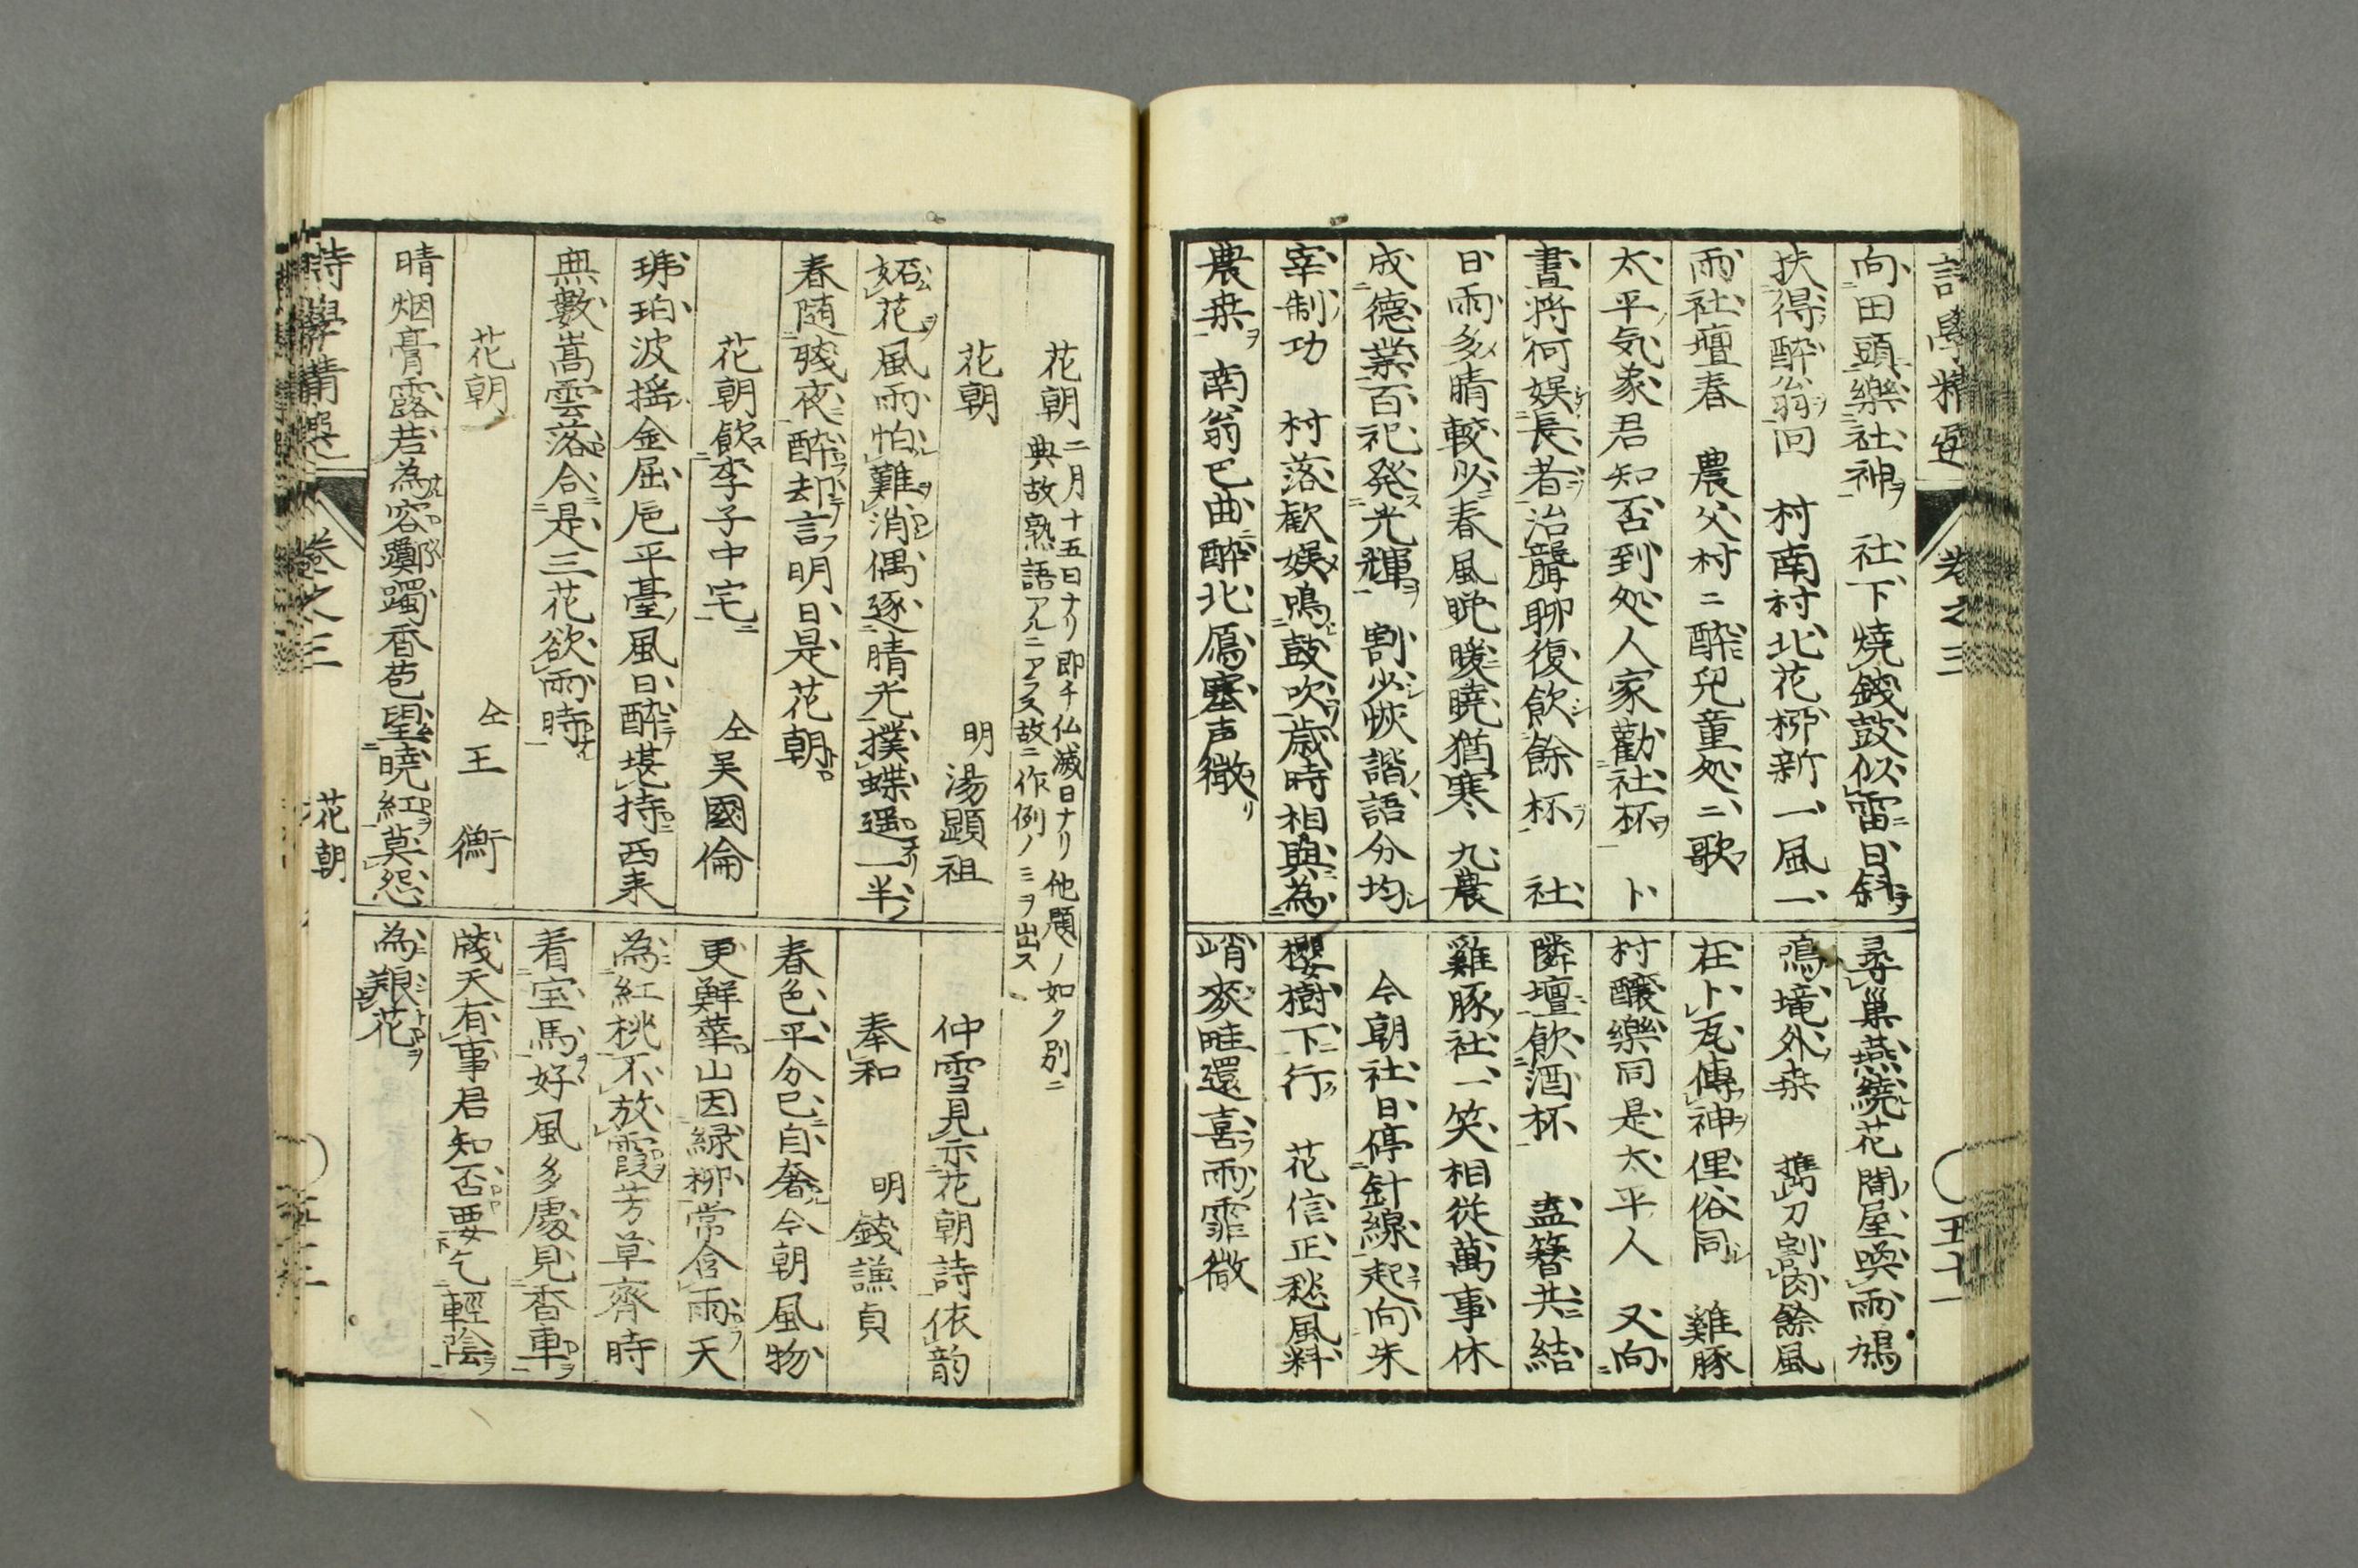 詩學精選 卷之三 五十一
向田頭樂社神 社下燒錢鼓似雷日斜
扶得醉翁回 村南村北花柳新一風一
雨社壇春 農父村ニ醉兒童処ニ歌
太平気象君知否到処人家勸社杯 卜
晝將何娯長者治聾聊復飲餘杯 社
日雨多晴較少春風晩暖曉猶寒 九農
成德業百祀発光輝 割少恢諧語分均
宰制功 村落歡娯鳴鼓吹歳時相與為
農桒 南翁巴曲醉北鴈塞声微
尋巢燕繞花間屋喚雨鳩
鳴堘外桒 携刀割肉餘風
在卜瓦傳神俚俗同 雞豚
村釀樂同是太平人 又向
隣壇飲酒杯 盍簪共結
雞豚社一笑相従萬事休
今朝社日停針線起向朱
櫻樹下行 花信正愁風料
峭麥畦還喜雨霏微
花朝 二月十五日ナリ即チ仏滅日ナリ他題ノ如ク別ニ
典故熟語アルニアラス故ニ作例ノミヲ出ス
花朝 明湯顕祖
妬花風雨怕難消偶逐晴光撲蝶遥一半
春随殘夜醉却言明日是花朝
花朝飲李子中宅 仝吴國倫
琥珀波揺金屈卮平臺風日醉堪持西来
無數嵩雲落合是三花欲雨時
花朝 仝王衜
晴烟膏露若為容躑躅香苞望曉紅莫怨
仲雪見示花朝詩依韵
奉和 明錢謙貞
春色平分已自奢今朝風物
更鮮華山因緑柳常含雨天
為紅桃不放霞芳草齊時
看宝馬好風多處見香車
蔵天有事君知否要乞輕陰
為報花
詩學精選 卷之三 花朝 五十二